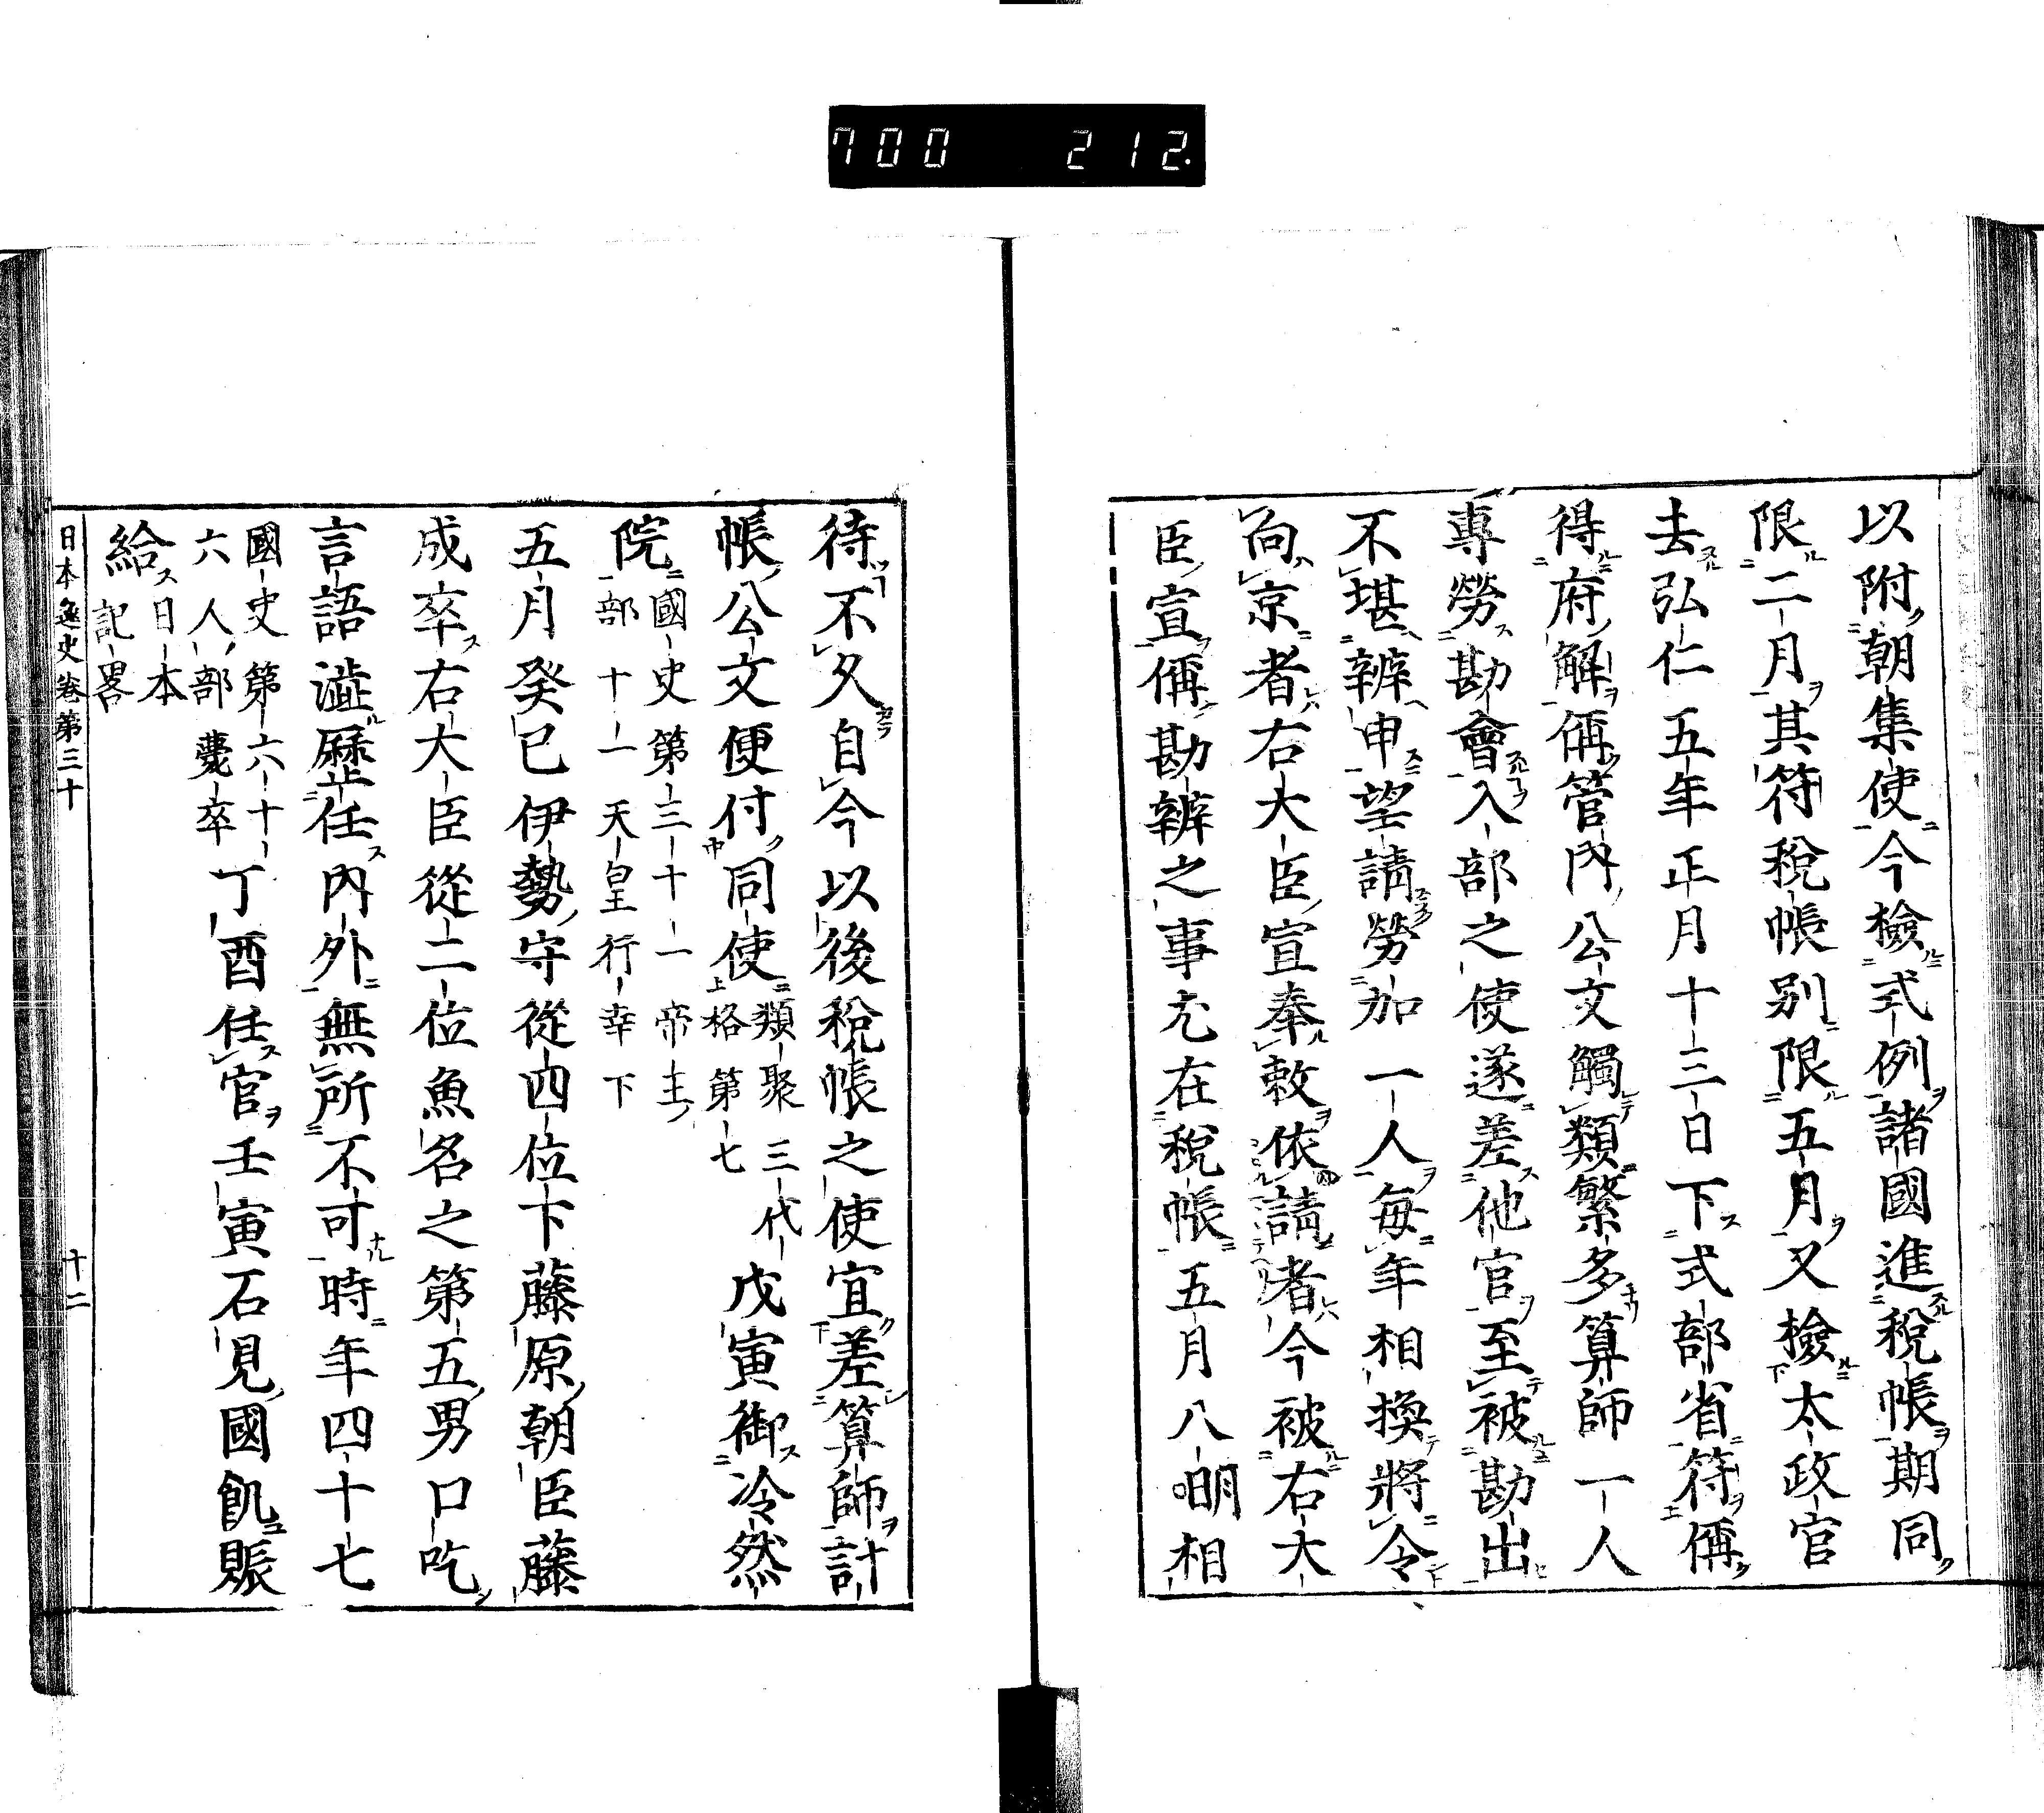 700 212.
以附朝集使今檢式例諸國進稅帳期同
限二月其符稅帳別限五月又檢太政官
去弘仁五年正月十三日下式部省符偁
得府解偁管內公文觸類繁多算師一人
專勞勘會入部之使遂差他官至被勘出
不堪辨申望請勞加一人每年相換將令
向京者右大臣宣奉敕依請者今被右大
臣宣偁勘辨之事尤在稅帳五月八明相
待不久自今以後稅帳之使宜差算師計
帳公文便付同使類聚三代格第七戊寅御冷然
院國史第三十一帝王部十一天皇行幸下
五月癸巳伊勢守從四位下藤原朝臣藤
成卒右大臣從二位魚名之第五男口吃
言語澁歷任內外無所不可時年四十七
國史第六十六人部薨卒丁酉任官壬寅石見國飢賑
給日本記畧
日本逸史卷第三十 十二